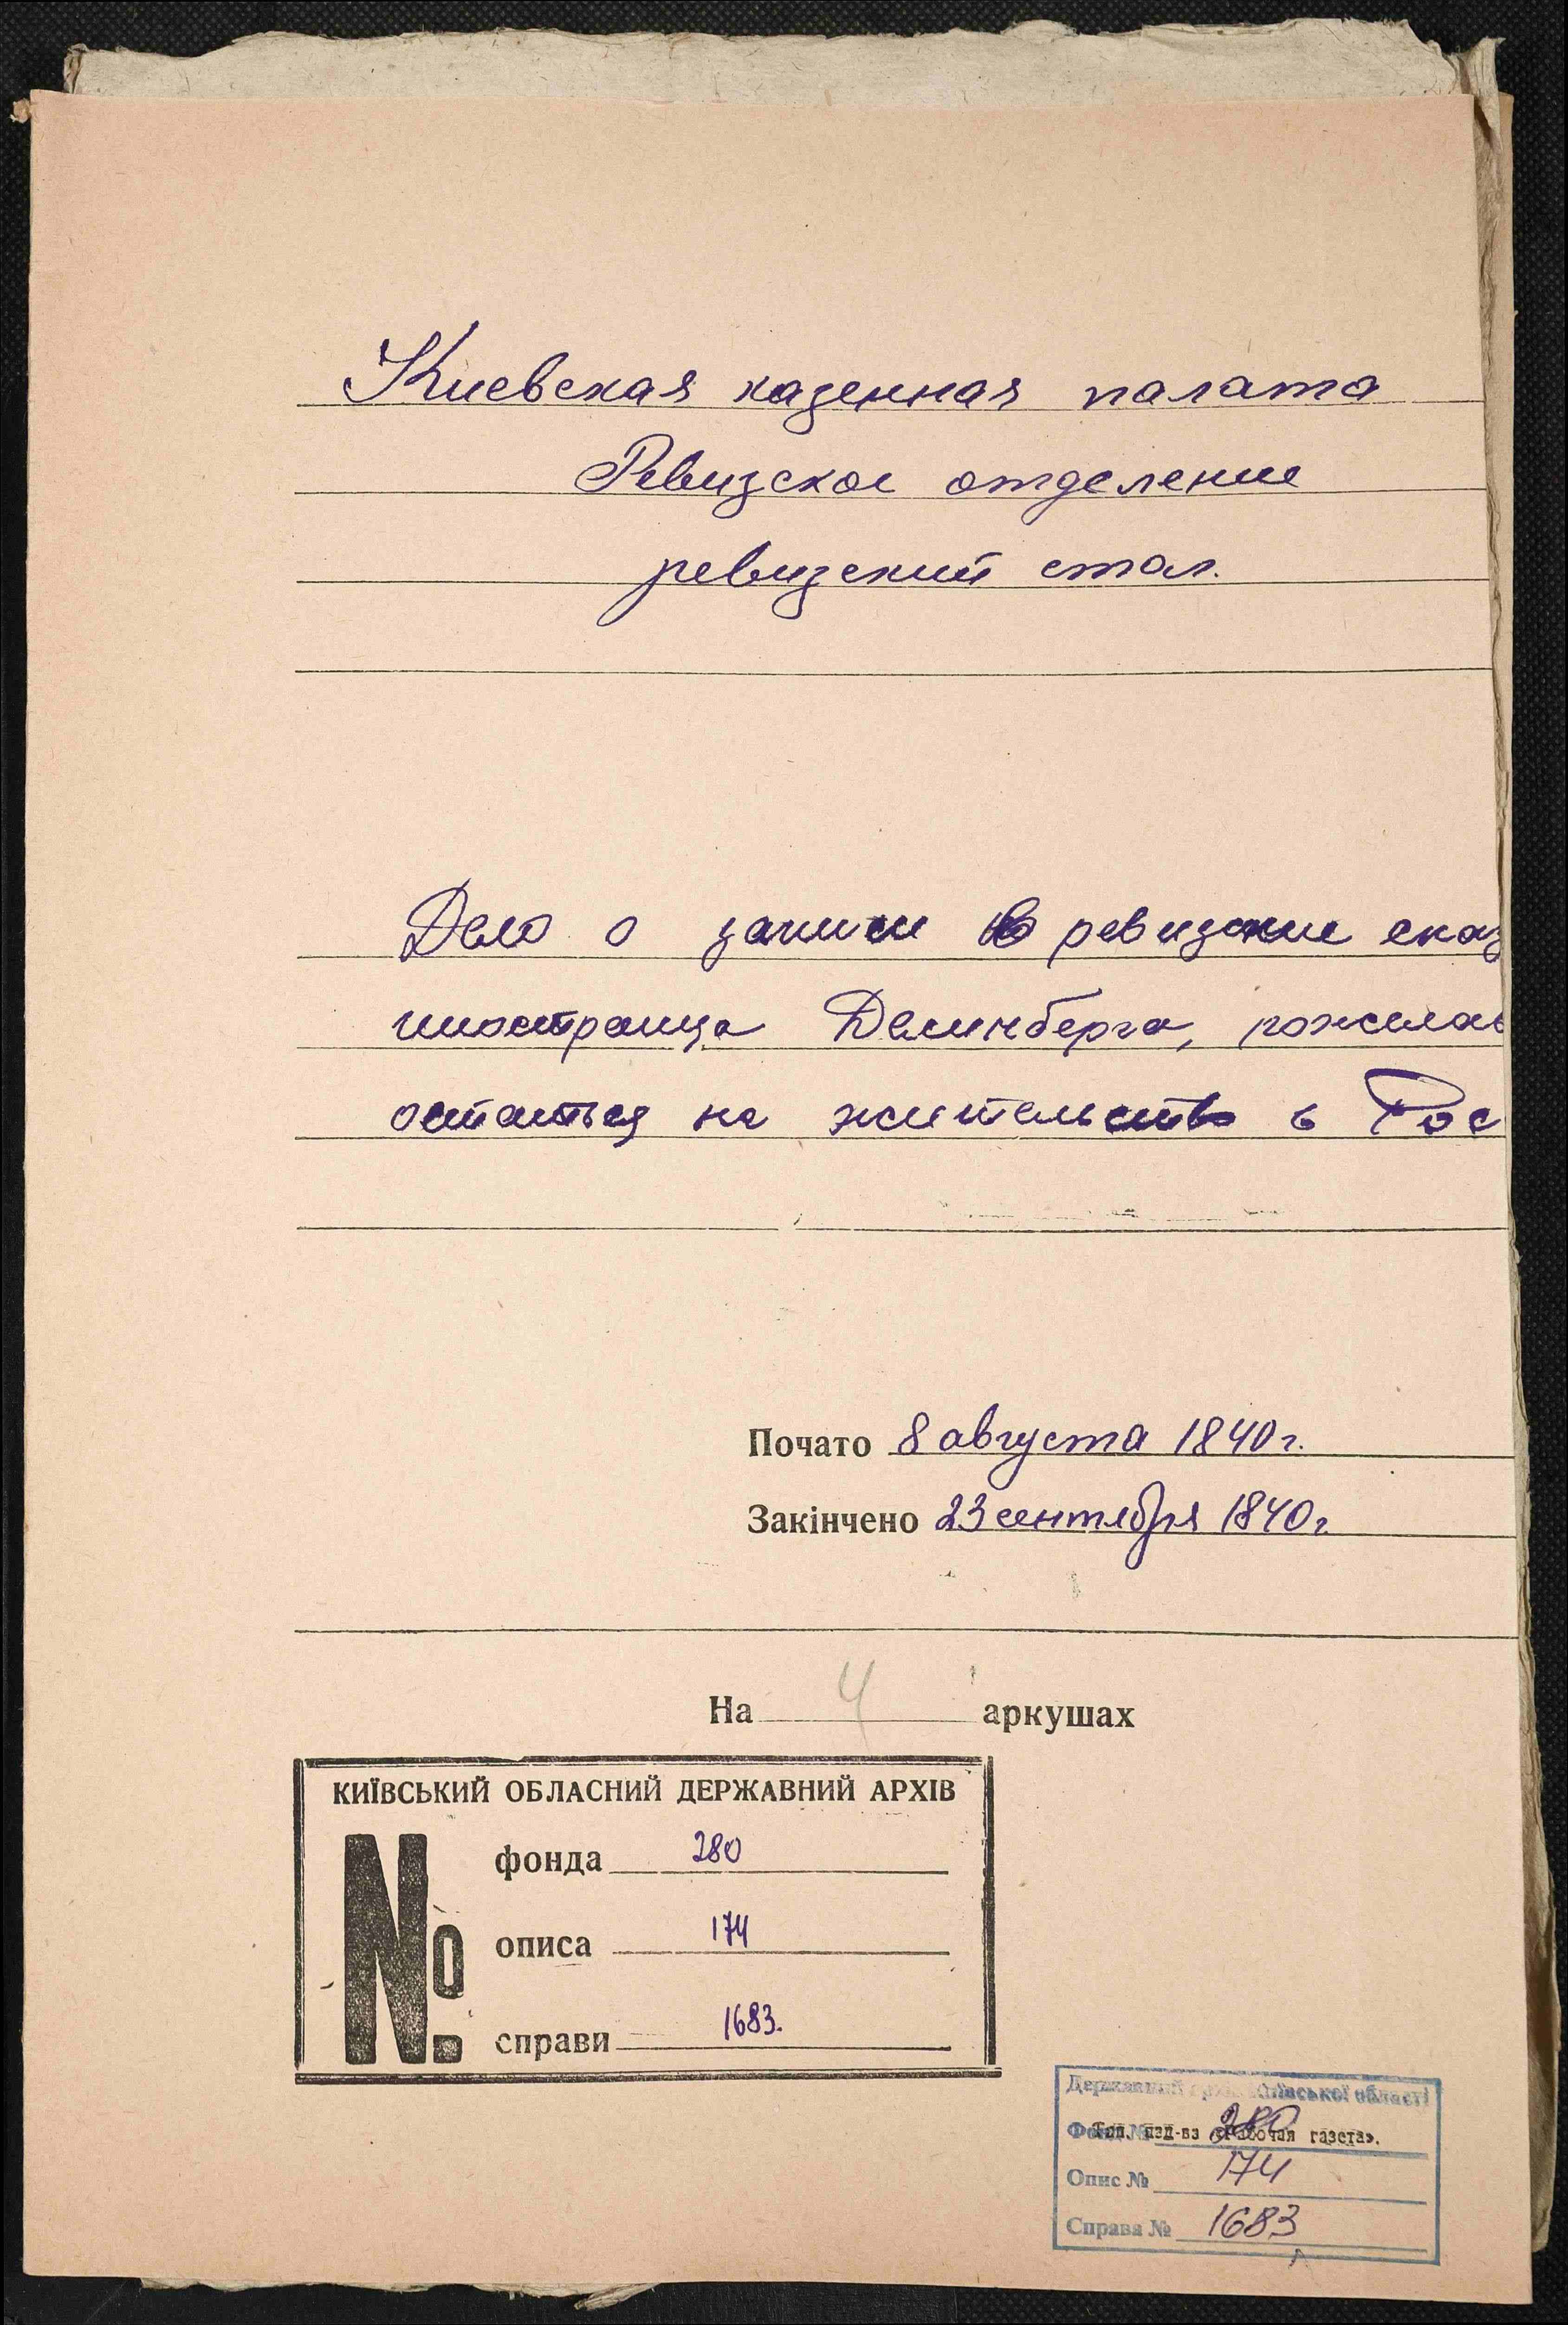 Киевская казенная палата
Ревизское отделение
ревизский стол.
Дело о записи в ревизские сказ
иностранца Делинберга, пожелав
остаться на жительство в Рос
Почато 8 августа 1840 г.
Закінчено 23 сентября 1840 г.
На 4 аркушах
КИЇВСЬКИЙ ОБЛАСНИЙ ДЕРЖАВНИЙ АРХІВ
№
фонда 280
описа 174
справи 1683.
Державний архів Київської області
Фонд № 280
Тип. изд-ва «Рабочая газета».
Опис № 174
Справа № 1683